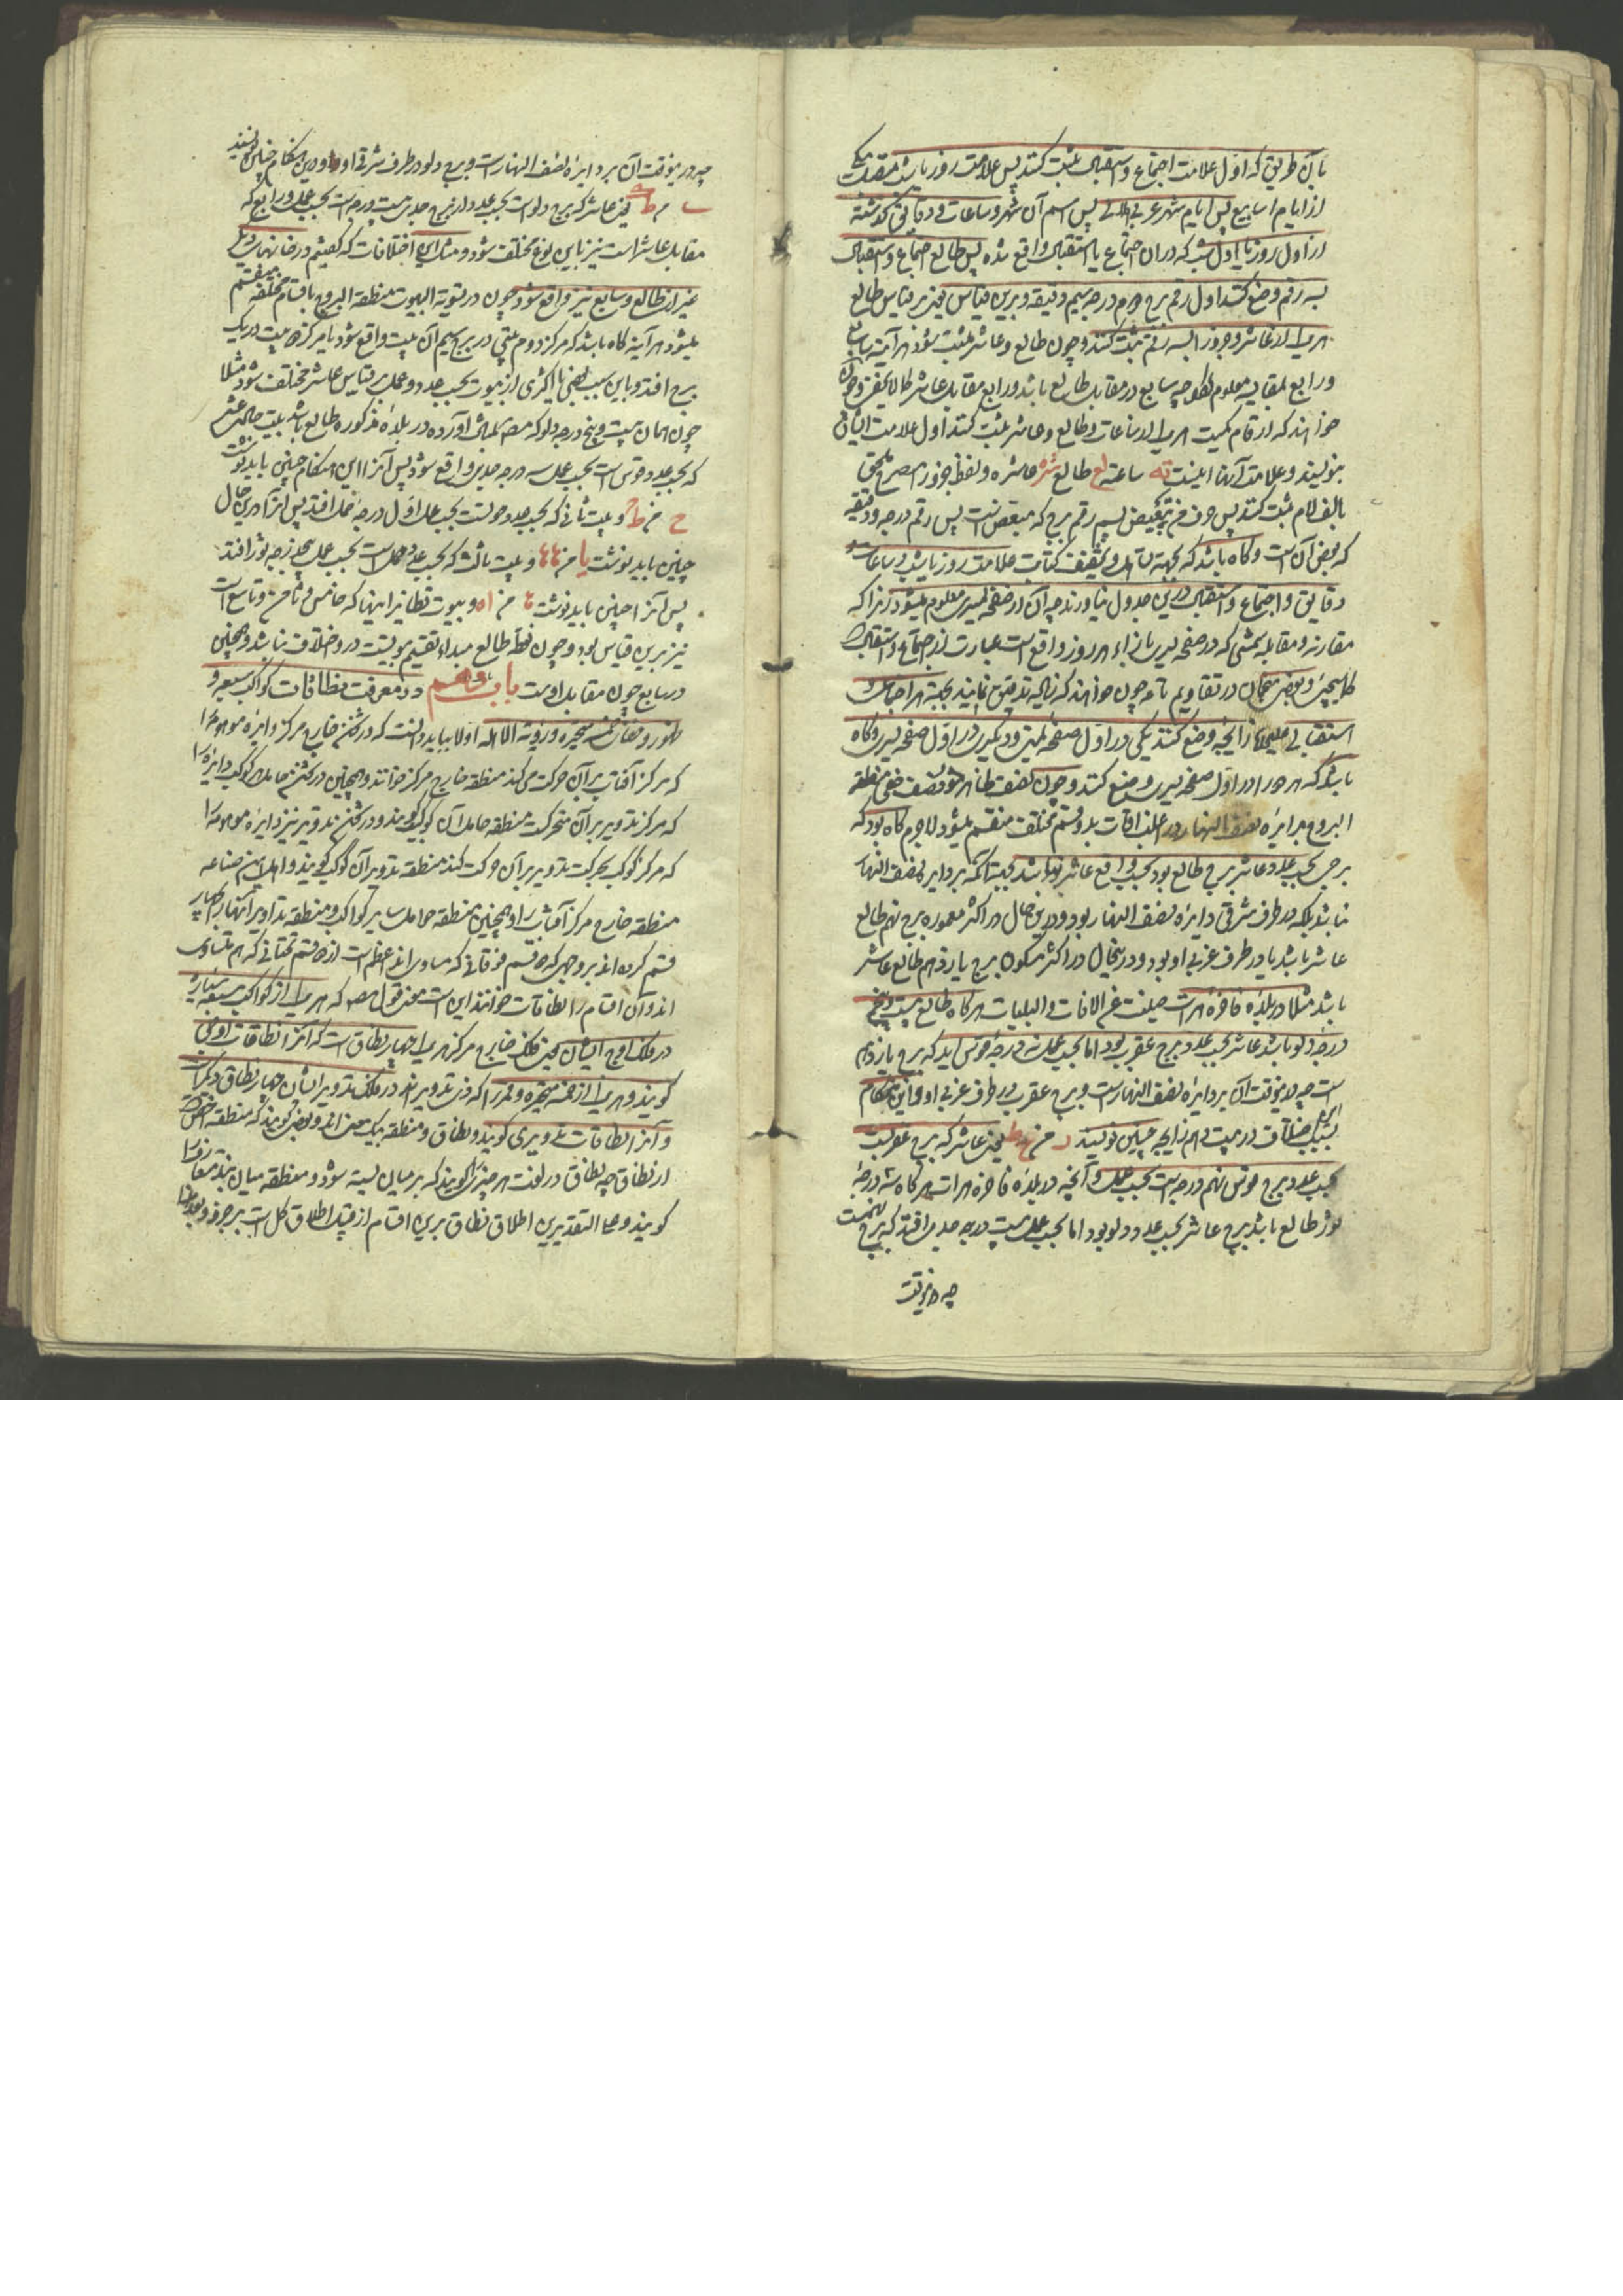 بآن طریق که اول علامت اجتماع و استقبال ثبت کنند پس علامت روز یا شب
از ایام اسابیع پس ایام شهر عربی هلالی پس اسم آن شهر و ساعات و دقایق گذشته
از اول روز یا اول شب که در آن اجتماع یا استقبال واقع شده پس طالع اجتماع و استقبال
بسه رقم وضع کنند اول رقم برج دوم درجه سیم دقیقه و برین قیاس یعنی بر قیاس طالع
هر یک از عاشر و جزو را بسه رقم ثبت کنند و چون طالع و عاشر مثبت شود هر آینه سابع
و رابع بمقایسه معلوم گردد چه سابع در مقابل طالع باشد و رابع مقابل عاشر کما لایخفی و چون
خواهند که ارقام کمیت هر یک از ساعات و طالع و عاشر ثبت کنند اول علامت ایشان
بنویسند و علامت آنها اینست ته ساعته لع طالع شره عاشره و لفظ جزو را مصرح ملحق
بالف لام ثبت کنند پس حرف من تبعیض پس رقم برج که مبعض است پس رقم درجه و دقیقه
که بعض آن است و گاه باشد که بجهة تساهل و تخفیف کتابت علامت روز یا شب و ساعات
دقایق و اجتماع و استقبال درین جدول نیاورند چه آن از صفحه یسری معلوم میشود زیرا که
مقارنه و مقابله شمسی که در صفحه یسری بازاء هر روز واقع است عبارت از اجتماع و استقبال
کما سیجیء و بعضی منجمان در تقاویم تامه چون خواهند که زایجه تدقیق نمایند بجهة هر اجتماعی
استقبالی علیحده زایجه وضع کنند یکی در اول صفحه یمنی و دیگری در اول صفحه یسری و گاه
باشد که هر دو را در اول صفحه یسری وضع کنند و چون نصف ظاهر و نصف خفی منطقة
البروج بدایره نصف النهار در اغلب اوقات بدو قسم مختلف منقسم میشود لاجرم گاه بود که
برجی که بحسب عدد عاشر برج طالع بود بحسب واقع عاشر نباشد بجهة آنکه بر دایره نصف النهار
نباشد بلکه در طرف شرقی دایره نصف النهار بود و درین حال در اکثر معموره برج نهم طالع
عاشر باشد یا در طرف غربی او بود و درینحال در اکثر مسکون برج یازدهم طالع عاشر
باشد مثلا در بلده فاخره هرات صینت عن الافات و البلیات هرگاه طالع بیست و پنج
درجه دلو باشد عاشر بحسب عدد برج عقرب بود اما بحسب عمل سه درجه قوس آید که برج یازدهم
است چه درینوقت آن بر دایره نصف النهار است و برج عقرب در طرف غربی او و این هنگام
بسبب اختلاف در بیت دهم زایجه چنین نویسند یعنی عاشر که برج عقربست
بحسب عدد برج قوس نهم درجه است بحسب عمل و آنچه در بلده فاخره هرات هرگاه سه درجه
ثور طالع باشد برج عاشر بحسب عدد دلو بود اما بحسب عمل بیست درجه جدی افتد که برج نهم است
چه درینوقت
چه درینوقت آن بر دایره نصف النهار است و برج دلو در طرف شرقی او و درین هنگام چنین نویسند
یعنی عاشر که برج دلو است بحسب عدد از برج جدی بیست درجه است بحسب عمل و رابع که
مقابل عاشر است نیز باین نوع مختلف شود و مثل این اختلافات که گفتیم در خانهای دیگر
غیر از طالع و سابع نیز واقع شود چون در تسویة البیوت منطقة البروج باقسام مختلفه منقسم
میشود هر آینه گاه باشد که مرکز دوم بیتی در برج سیم آن بیت واقع شود یا مرکز دو بیت در یک
برج افتد و باین سبب بعضی یا اکثری از بیوت بحسب عدد و عمل بر قیاس عاشر مختلف شود مثلا
چون همان بیست و پنج درجه دلو که مصنف بمثال آورده در بلده مذکوره طالع باشد بیت حادی عشر
که بحسب عدد قوس است بحسب عمل سه درجه جدی واقع شود پس آنرا این هنگام چنین باید نوشت
و بیت ثانی که بحسب عدد حوتست بحسب عمل اول درجه حمل افتد پس آنرا درین حال
چنین باید نوشت یا من ها ها و بیت ثالث که بحسب عدد حمل است بحسب عمل پنج درجه ثور افتد
پس آنرا چنین باید نوشت ها من ا ه و بیوت نظایر اینها که خامس و ثامن و تاسع است
نیز برین قیاس بود و چون نقطه طالع مبداء تقسیم بیوتست در و اختلاف نباشد و همچنین
در سابع چون مقابل اوست باب در معرفت نطاقات کواکب سبعه و
ظهور و خفای خمسه متحیره و رؤیة الاهله اولا بباید دانست که در ثخن خارج مرکز دایره موهومه را
که مرکز آفتاب بر آن حرکت میکند منطقه خارج مرکز خوانند و همچنین در ثخن حامل کوکب دایره را
که مرکز تدویر بر آن متحرکست منطقه حامل آن کوکب گویند و در ثخن تدویر نیز دایره موهومه را
که مرکز کوکب بحرکت تدویر بر آن حرکت کند منطقه تدویر آن کوکب گویند و اهل این صناعه
منطقه خارج مرکز آفتاب را و همچنین منطقه حوامل سایر کواکب و منطقه تداویر آنها را بچهار
قسم کرده اند بر وجهی که دو قسم فوقانی که مساوی اند اعظم است از دو قسم تحتانی که هم متساوی
اند و آن اقسام را نطاقات خوانند این است معنی قول مصنف که هر یک از کواکب سبعه سیاره
در فلک اوج ایشان یعنی فلک خارج مرکز هر یک چهار نطاق است که آنرا نطاقات اوجی
گویند و هر یک از خمسه متحیره و قمر را که ذی تدویرند در فلک تدویر ایشان چهار نطاق دیگر است
و آنرا نطاقات تدویری گویند و نطاق و منطقه بیک معنی اند و بعضی گویند که منطقه اخص است
از نطاق چه نطاق در لغت هر چیز را گویند که بر میان بسته شود و منطقه میان بند معتاد را
گویند و علی التقدیرین اطلاق نطاق برین اقسام از قبیل اطلاق کل است بر جزو